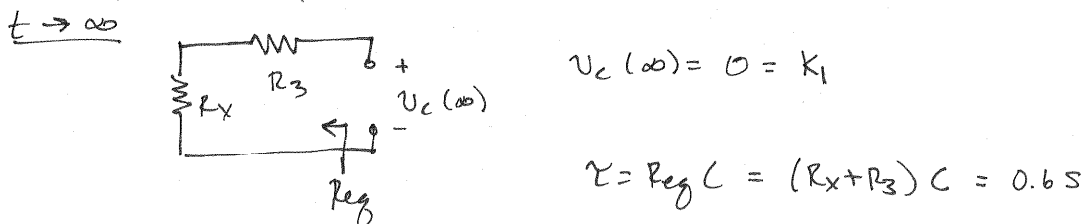 t → ∞
R3
+
Vc (∞)
-
Rx
Req
Vc (∞) = 0 = K1
τ = Req C = (Rx+R3) C = 0.6 s